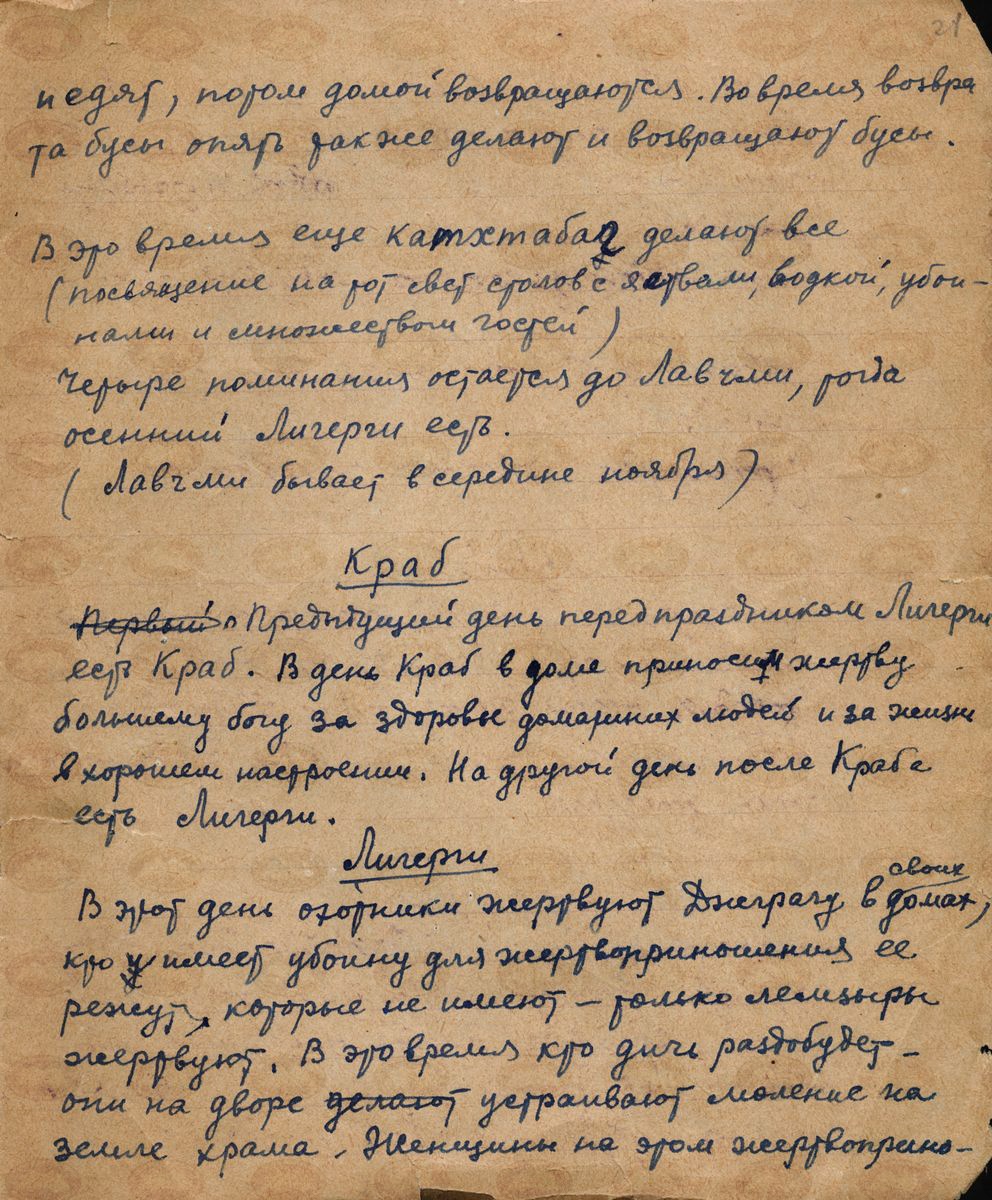 21
и едят, потом домой возвращаются. Во время возвра
та бусы опять также делают и возвращают бусы.
В это время еще делают все
(посвящение на тот свет столов с яствами, водкой, убои-
нами и множеством гостей)
Четыре поминания остается до Лавчми, тогда
осенний Личерги есть.
(Лавчми бывает в середине ноября)
Краб
Первый. Предыдущий день перед праздником Личерги
есть Краб. В день Краб в доме приносим жертву
большему богу за здоровье домашних людей и за жизнь
в хорошем настроении. На другой день после Краба
есть Личерги.
Личерги
В этот день охотники жертвуют Джграгу в своих домах,
кто имеет убоину для жертвоприношения ее
режут, которые не имеют – только лемзыры
жертвуют. В это время кто дичь раздобудет –
они на дворе делают устраивают моление на
земле храма. Женщины на этом жертвоприно-